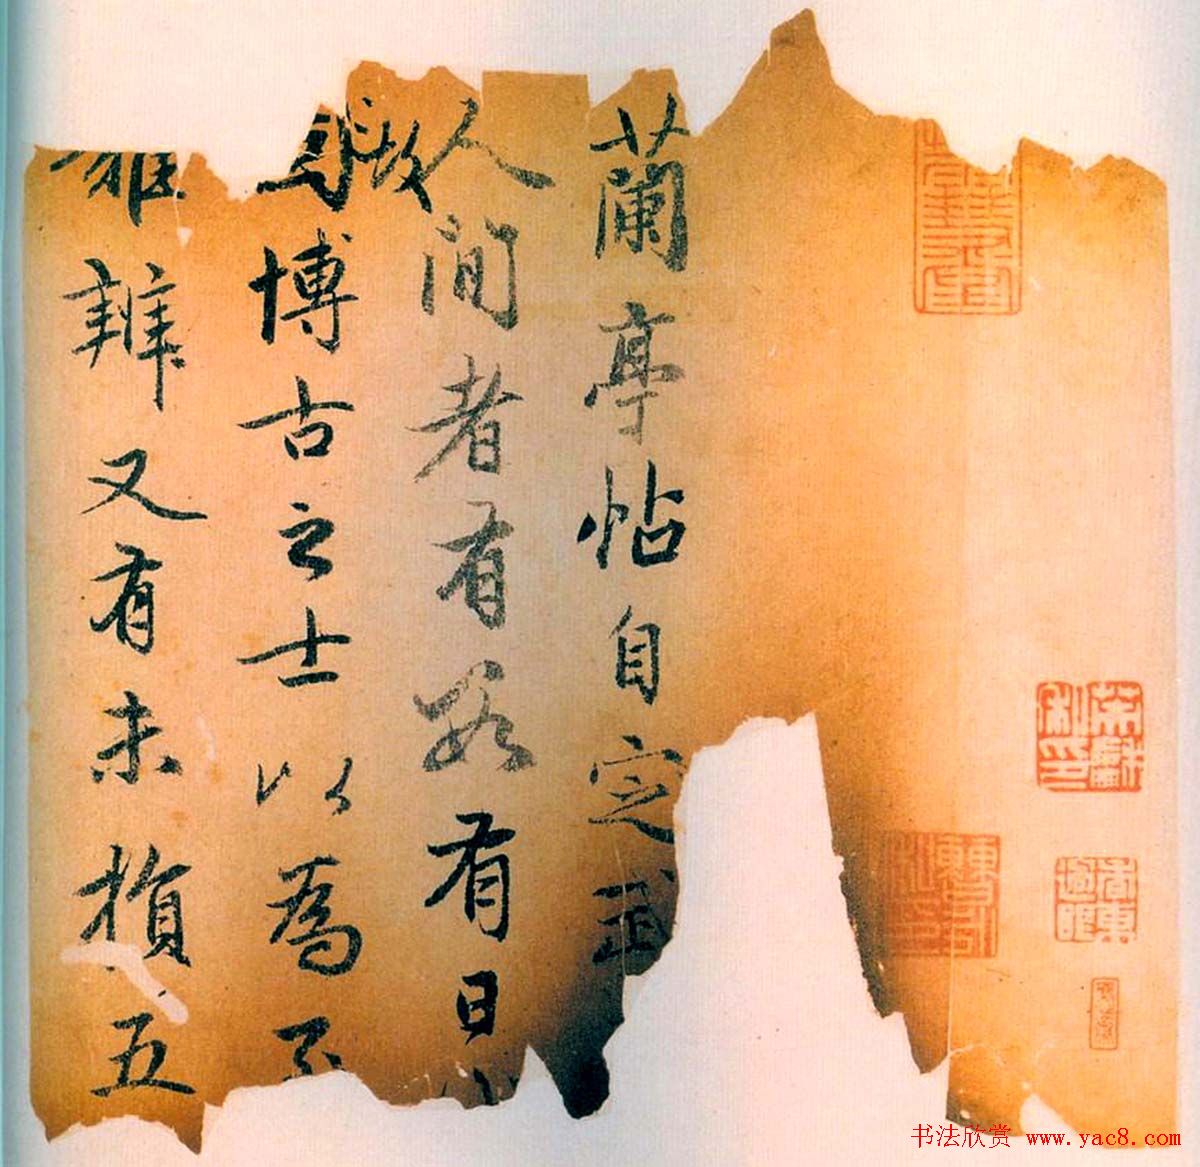 蘭亭帖自定武
人間者有數有日
故
博古之士以爲不
雖辨又有未損五
书法欣赏 www.yac8.com